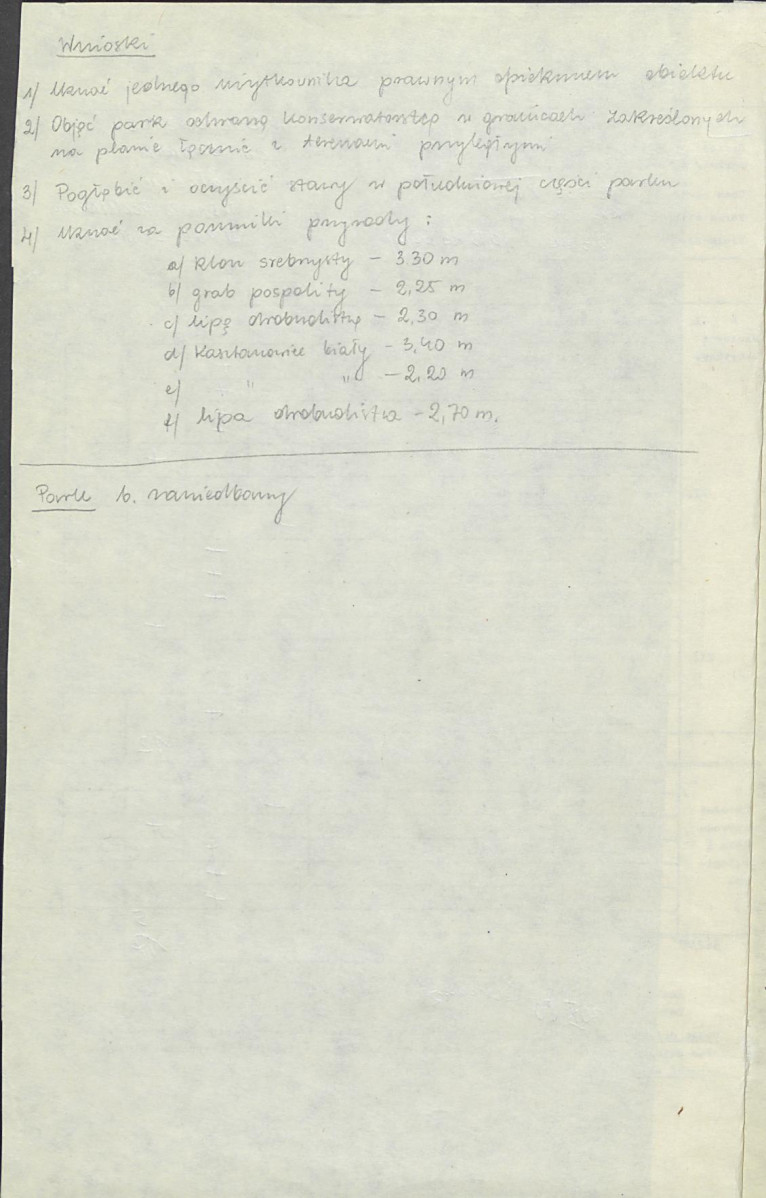 Wnioski
1/ Uznać jednego użytkownika prawnym opiekunem obiektu
2/ Objąć park ochroną konserwatorską w granicach zakreślonych
na planie łącznie z terenami przyległymi
3/ Pogłębić i oczyścić stawy w południowej części parku
4/ Uznać za pomniki przyrody :
a/ klon srebrzysty – 3.30 m
b/ grab pospolity – 2,25 m
c/ lipę drobnolistną – 2,30 m
d/ Kasztanowiec biały – 3,40 m
e/ " " – 2,20 m
f/ lipa drobnolistna – 2,70 m.
Park b. zaniedbany